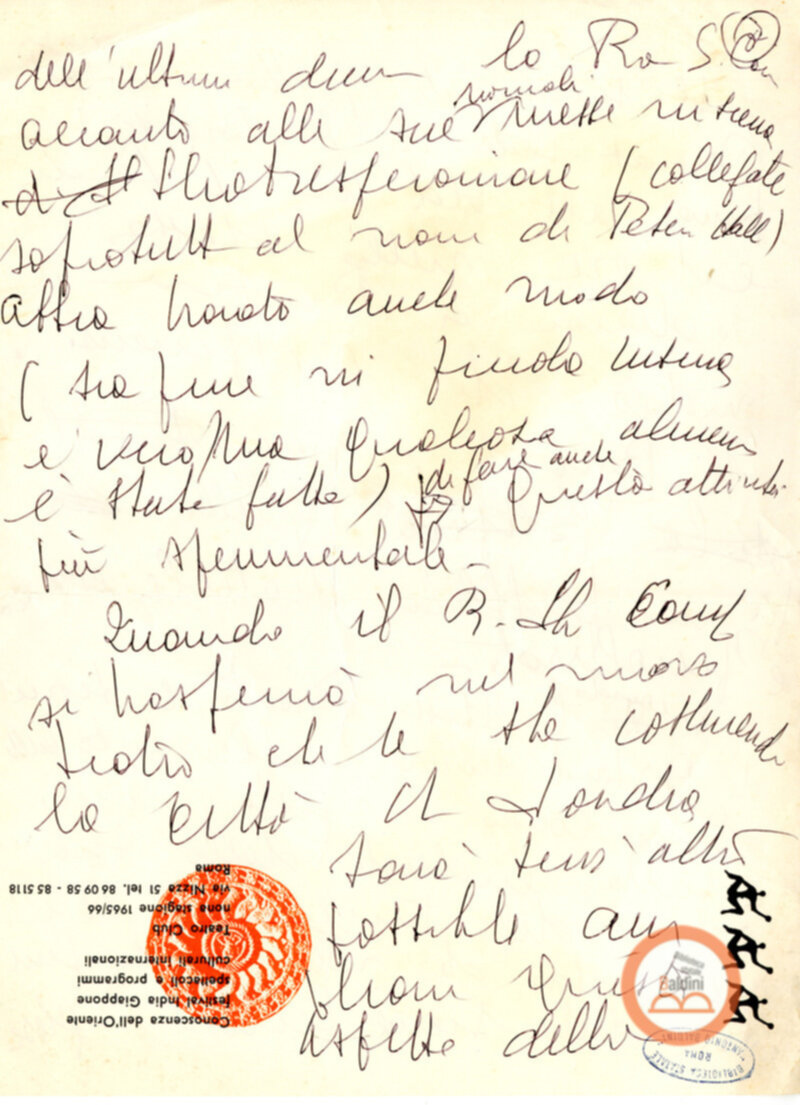 2
dell'ultimo decen la Ro S. Com
accanto alle sue normali messe in scena
Shakespeariane (collegate
soprattutto al nome di Peter Hall)
abbia trovato anche modo
(sia pure in piccola misura
è vero, ma qualcosa almeno
è stata fatta) di fare anche questa attività
più sperimentale -
Quando il R. Sh Comp
si trasferirà nel nuovo
teatro che le sta costruendo
la città di Londra
sarà senz'altro
possibile am
questo
aspetto della
Conoscenza dell'Oriente
festival India Giappone
spettacoli e programmi
culturali internazionali
Teatro Club
nona stagione 1965/66
via Nizza 51 tel. 86 09 58 - 85 5118
Roma
Biblioteca
Baldini
BIBLIOTECA STATALE
"ANTONIO BALDINI"
ROMA